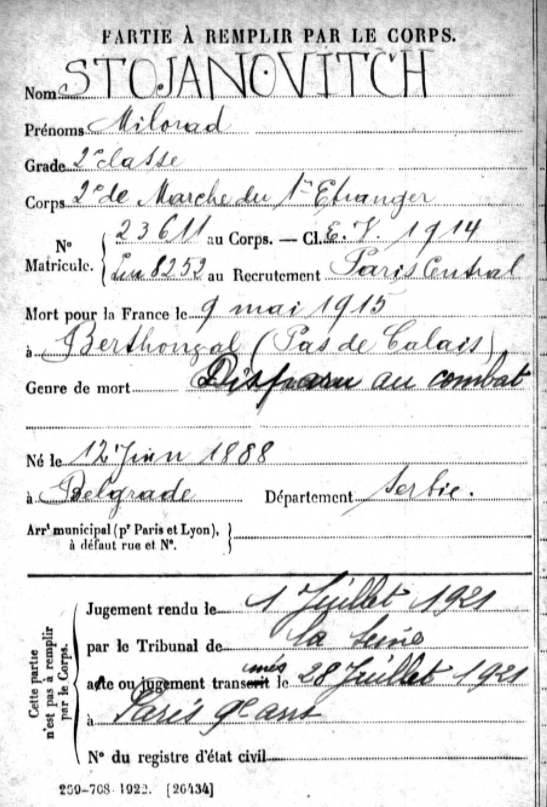 PARTIE À REMPLIR PAR LE CORPS.
Nom STOJANOVITCH
Prénoms Milorad
Grade 2e classe
Corps 2e de Marche du 1er Etranger
No Matricule. 23611 au Corps. — Cl. E. V. 1914
8252 au Recrutement Paris Central
Mort pour la France le 9 mai 1915
à Berthonval (Pas de Calais)
Genre de mort Disparu au combat
Né le 12 Juin 1888
à Belgrade Département Serbie.
Arrt municipal (pr Paris et Lyon),
à défaut rue et No.
Cette partie
n'est pas à remplir
par le Corps.
Jugement rendu le 1 Juillet 1921
par le Tribunal de la Seine
acte ou jugement transcrit le 28 Juillet 1921
à Paris 9e arrt
No du registre d'état civil
269-708-1922. [26434]